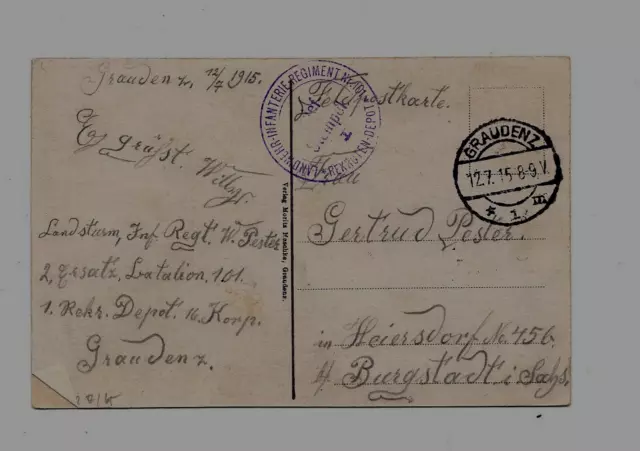 Graudenz, 12/7 1915.
Es grüsst Willy.
Landsturm, Inf. Regt. W. Pester
2, Ersatz, Batalion, 101.
1. Rekr. Depot. 16 Korp.
Graudenz.
Verlag Moritz Maschke, Graudenz.
LANDWEHR-INFANTERIE-REGIMENT
REKRUTEN-DEPOT
Feldpostkarte.
GRAUDENZ
12.7.15.8-9.V.
* 1 m
Frau
Gertrud Pester.
in Heiersdorf No. 456.
b/ Burgstädt i Sachs.